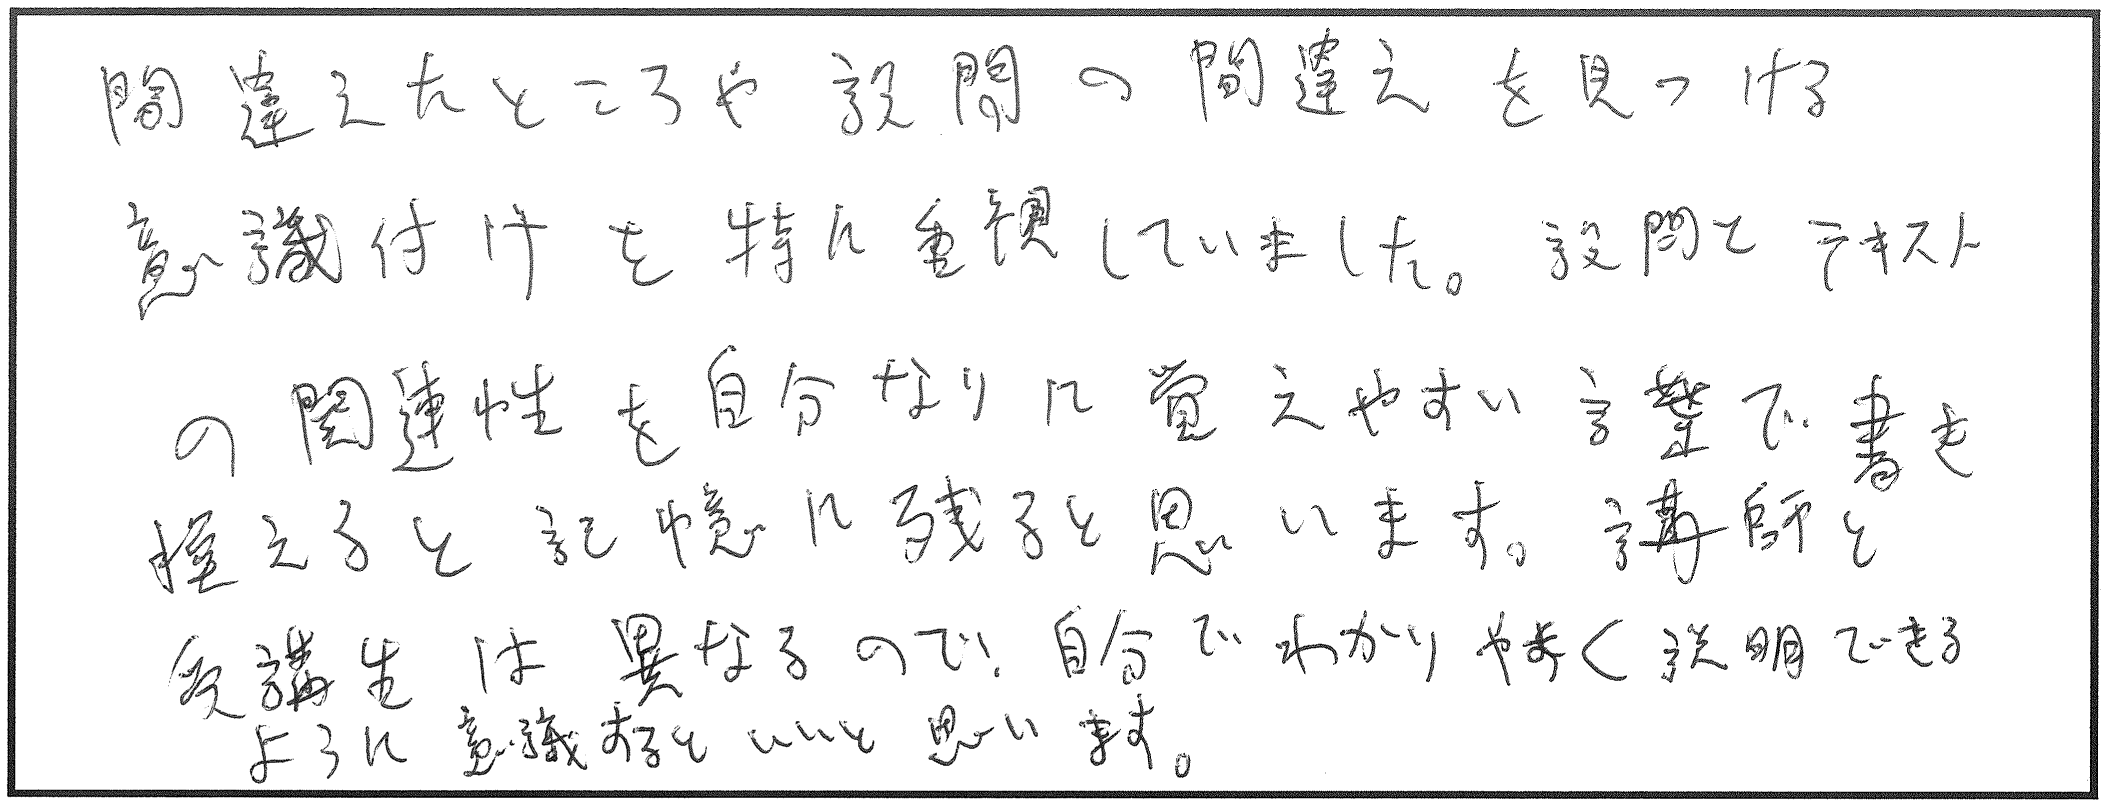 間違えたところや設問の間違えを見つける
意識付けを特に重視していました。設問とテキスト
の関連性を自分なりに覚えやすい言葉で書き
控えると記憶に残ると思います。講師と
受講生は異なるので、自分でわかりやすく説明できる
ように意識するといいと思います。